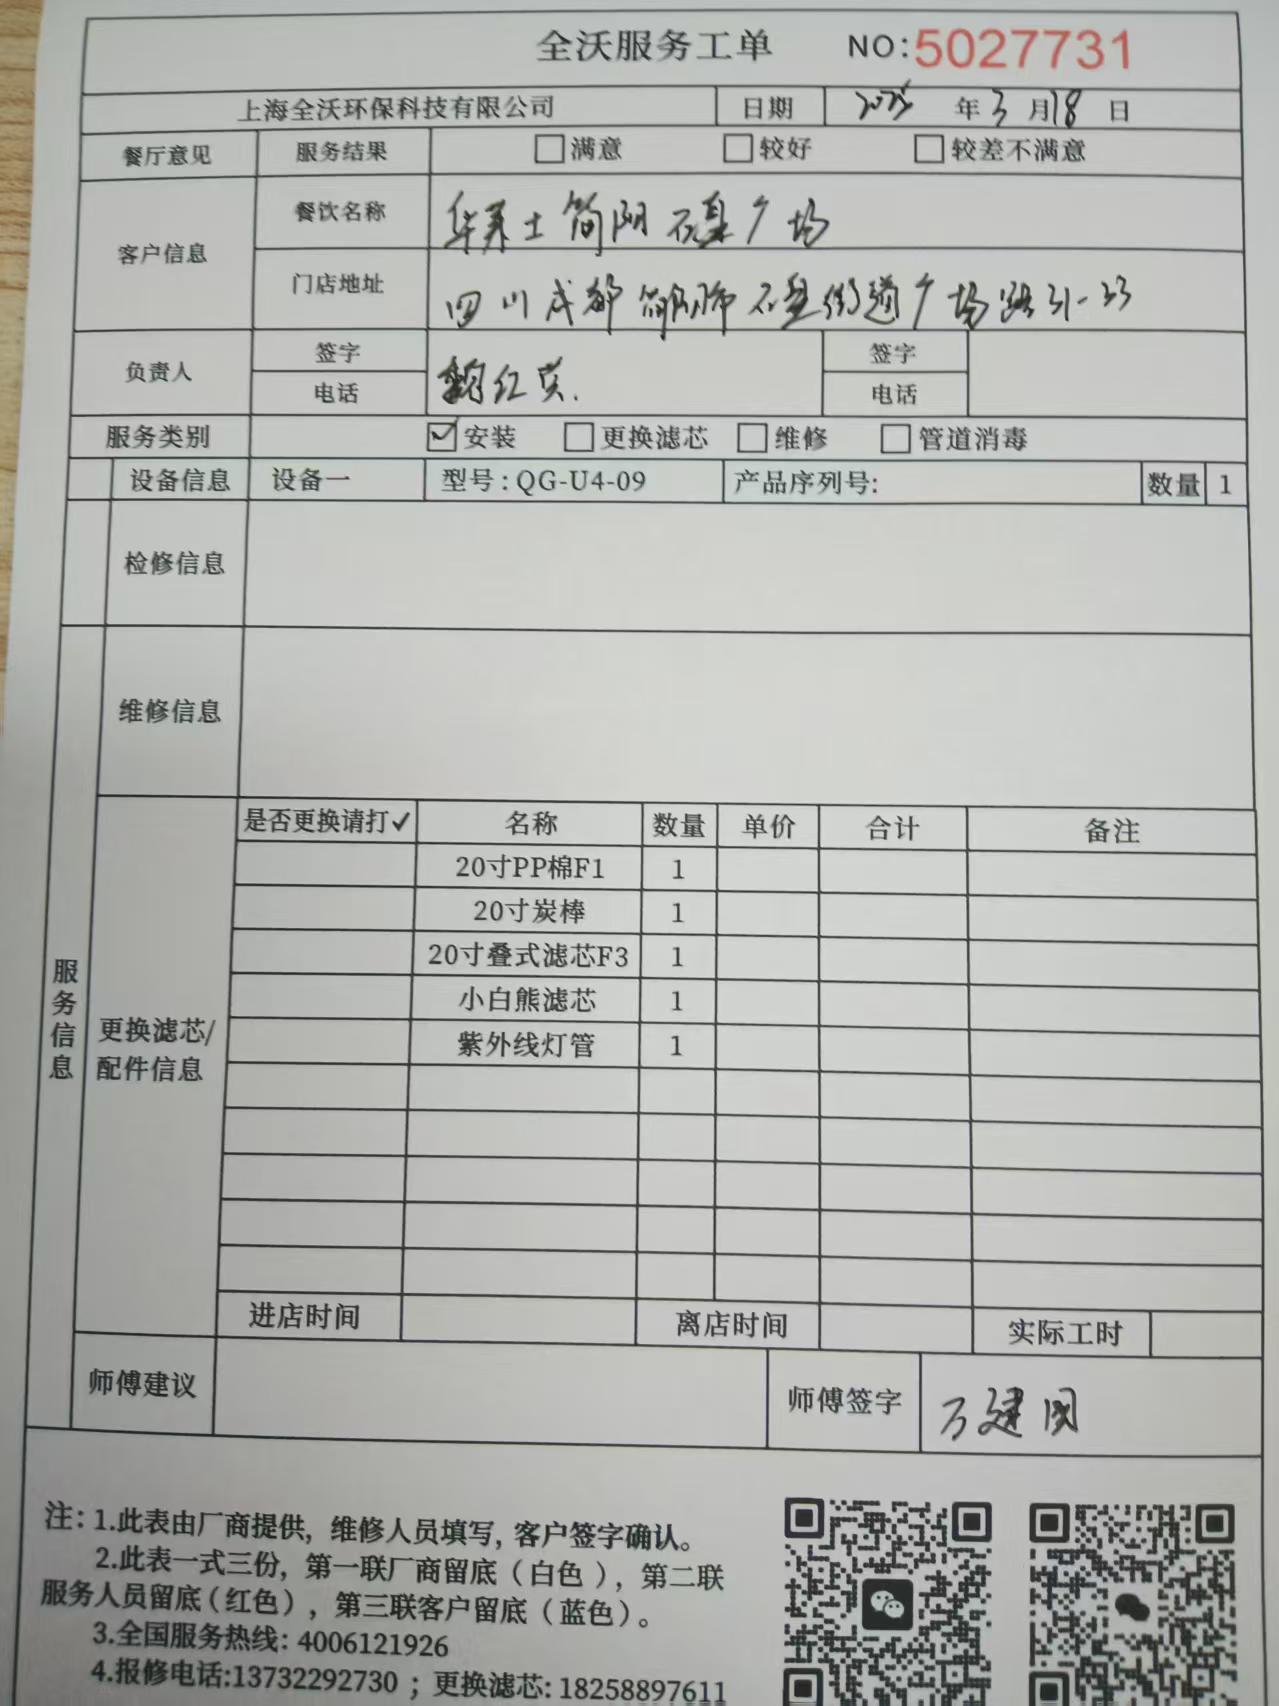 全沃服务工单 NO:5027731
上海全沃环保科技有限公司 日期 2025年3月18日
餐厅意见 服务结果 □满意 □较好 □较差不满意
客户信息 餐饮名称 华莱士简阳石盘广场
门店地址 四川成都简阳市石盘街道广场路31-33
负责人 签字 红英. 签字
电话 电话
服务类别 ☑安装 □更换滤芯 □维修 □管道消毒
设备信息 设备一 型号:QG-U4-09 产品序列号: 数量 1
检修信息
维修信息
服务信息
更换滤芯/
配件信息
是否更换请打✓ 名称 数量 单价 合计 备注
20寸PP棉F1 1
20寸炭棒 1
20寸叠式滤芯F3 1
小白熊滤芯 1
紫外线灯管 1
进店时间 离店时间 实际工时
师傅建议 师傅签字 万建国
注: 1.此表由厂商提供, 维修人员填写, 客户签字确认。
2.此表一式三份, 第一联厂商留底(白色), 第二联
服务人员留底(红色), 第三联客户留底(蓝色)。
3.全国服务热线: 4006121926
4.报修电话:13732292730 ; 更换滤芯: 18258897611